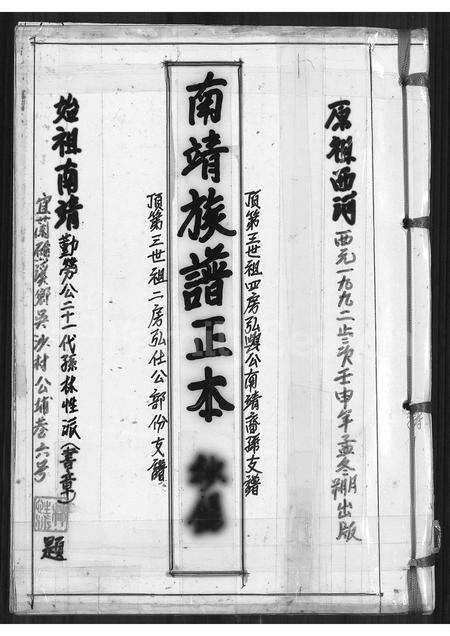 原祖西河 西元一九九二止三次壬申年孟冬朔月出版
頂第三世祖四房弘興公南靖裔孫支譜
南靖族譜正本
頂第三世祖二房弘仕公部份支譜
始祖南靖勤勞公二十一代孫林性派(書章)題
宜蘭礁溪鄉吳沙村公埔巷六号